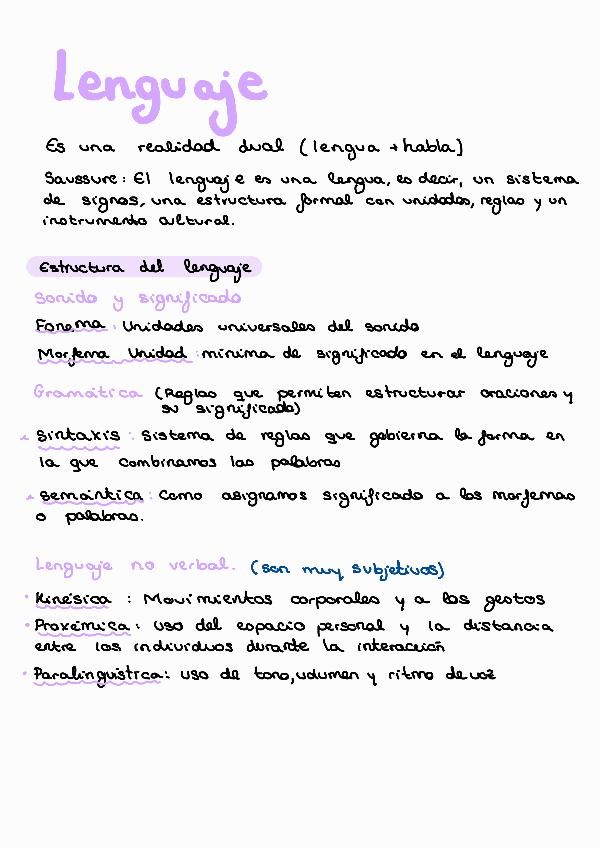 Lenguaje
Es una realidad dual (lengua + habla)
Saussure: El lenguaje es una lengua, es decir, un sistema
de signos, una estructura formal con unidades, reglas y un
instrumento cultural.
Estructura del lenguaje
Sonido y significado
Fonema: Unidades universales del sonido
Morfema Unidad: mínima de significado en el lenguaje
Gramática (Reglas que permiten estructurar oraciones y
su significado)
Sintaxis: Sistema de reglas que gobierna la forma en
la que combinamos las palabras
Semántica: Como asignamos significado a los morfemas
o palabras.
Lenguaje no verbal. (son muy subjetivos)
Kinésica : Movimientos corporales y a los gestos
Proxémica: uso del espacio personal y la distancia
entre los individuos durante la interacción
Paralinguística: uso de tono, volumen y ritmo de voz